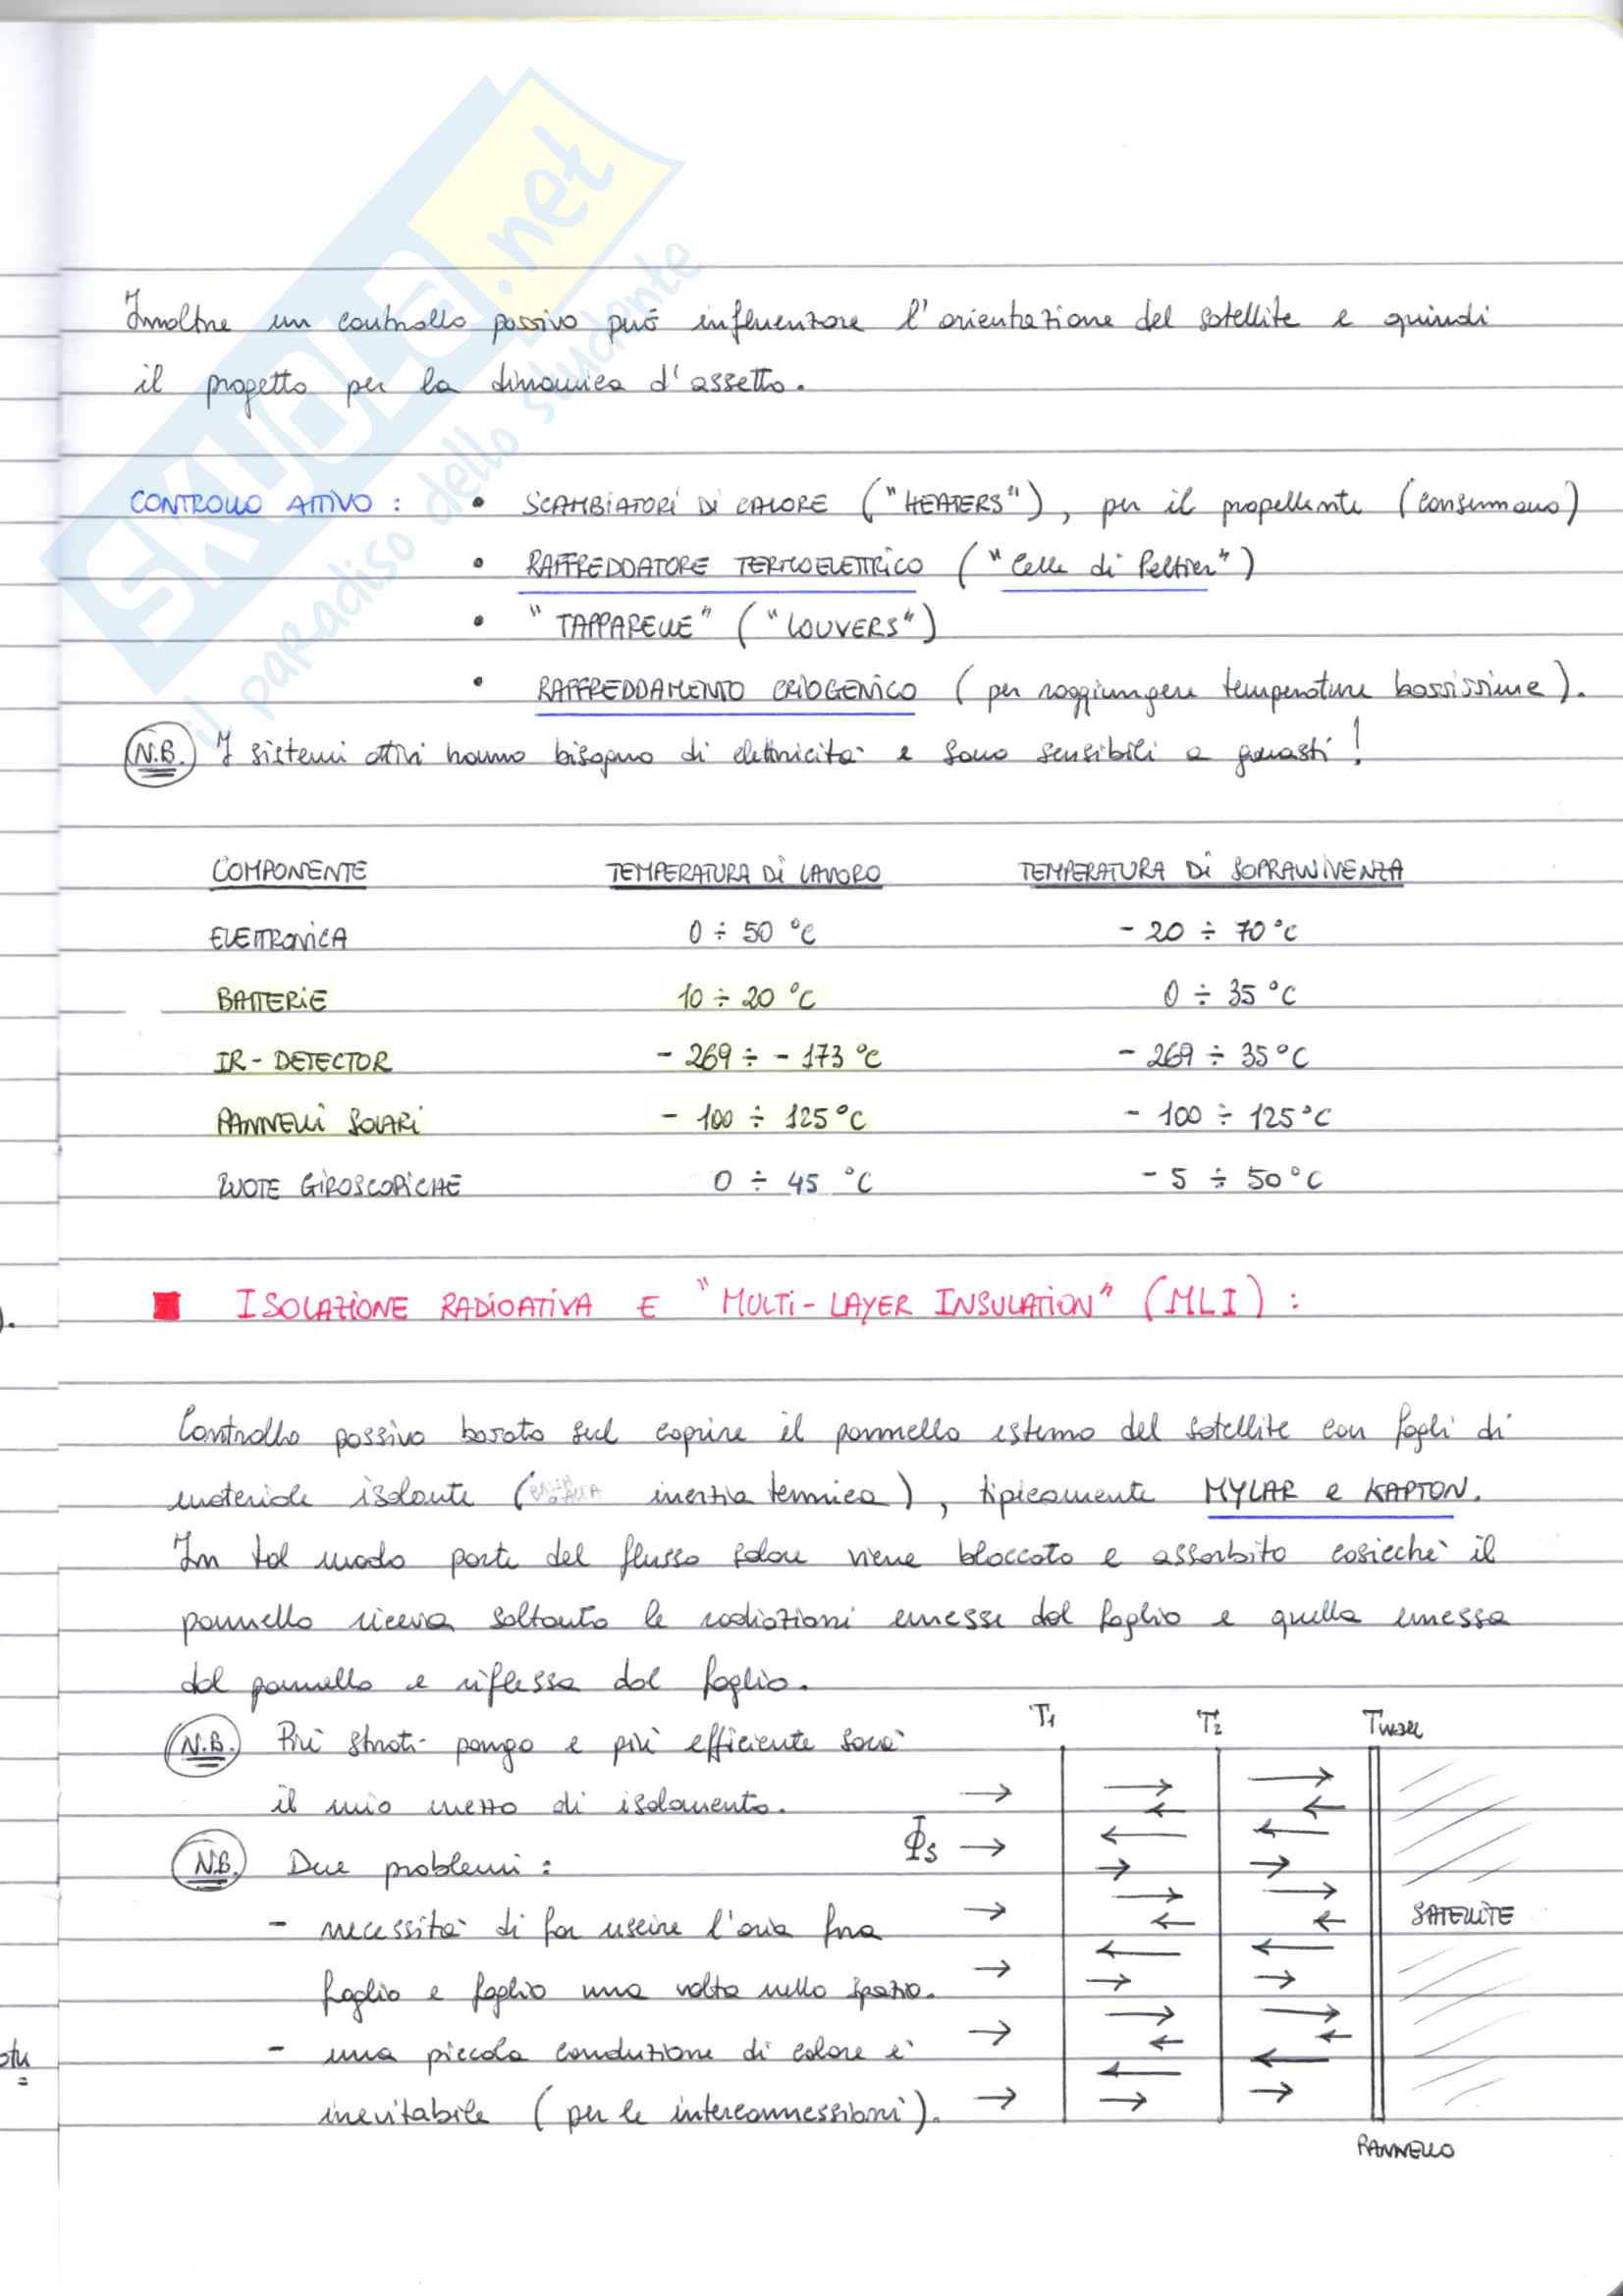 SKUOLA.net
il paradiso dello studente
Inoltre un controllo passivo può influenzare l'orientazione del satellite e quindi
il progetto per la dinamica d'assetto.
CONTROLLO ATTIVO : • SCAMBIATORI DI CALORE ("HEATERS"), per il propellente (consumano)
• RAFFREDDATORE TERMOELETTRICO ("Celle di Peltier")
• "TAPPARELLE" ("LOUVERS")
• RAFFREDDAMENTO CRIOGENICO (per raggiungere temperature bassissime).
N.B. I sistemi attivi hanno bisogno di elettricità e sono sensibili a guasti!
COMPONENTE TEMPERATURA DI LAVORO TEMPERATURA DI SOPRAVVIVENZA
ELETTRONICA 0 ÷ 50 °C - 20 ÷ 70 °C
BATTERIE 10 ÷ 20 °C 0 ÷ 35 °C
IR - DETECTOR - 269 ÷ - 173 °C - 269 ÷ 35 °C
PANNELLI SOLARI - 100 ÷ 125 °C - 100 ÷ 125 °C
RUOTE GIROSCOPICHE 0 ÷ 45 °C - 5 ÷ 50 °C
).
ISOLAZIONE RADIOATIVA E "MULTI-LAYER INSULATION" (MLI) :
Controllo passivo basato sul coprire il pannello esterno del satellite con fogli di
materiale isolante ( inerzia termica), tipicamente MYLAR e KAPTON.
In tal modo parte del flusso solare viene bloccato e assorbito cosicchè il
pannello riceva soltanto le radiazioni emesse dal foglio e quella emessa
dal pannello e riflessa dal foglio.
N.B. Più strati pongo e più efficiente sarà
il mio mezzo di isolamento.
N.B. Due problemi :
- necessità di far uscire l'aria fra
foglio e foglio una volta nello spazio.
- una piccola conduzione di calore è
inevitabile (per le interconnessioni).
T1 T2 Twall
Φs
SATELLITE
PANNELLO